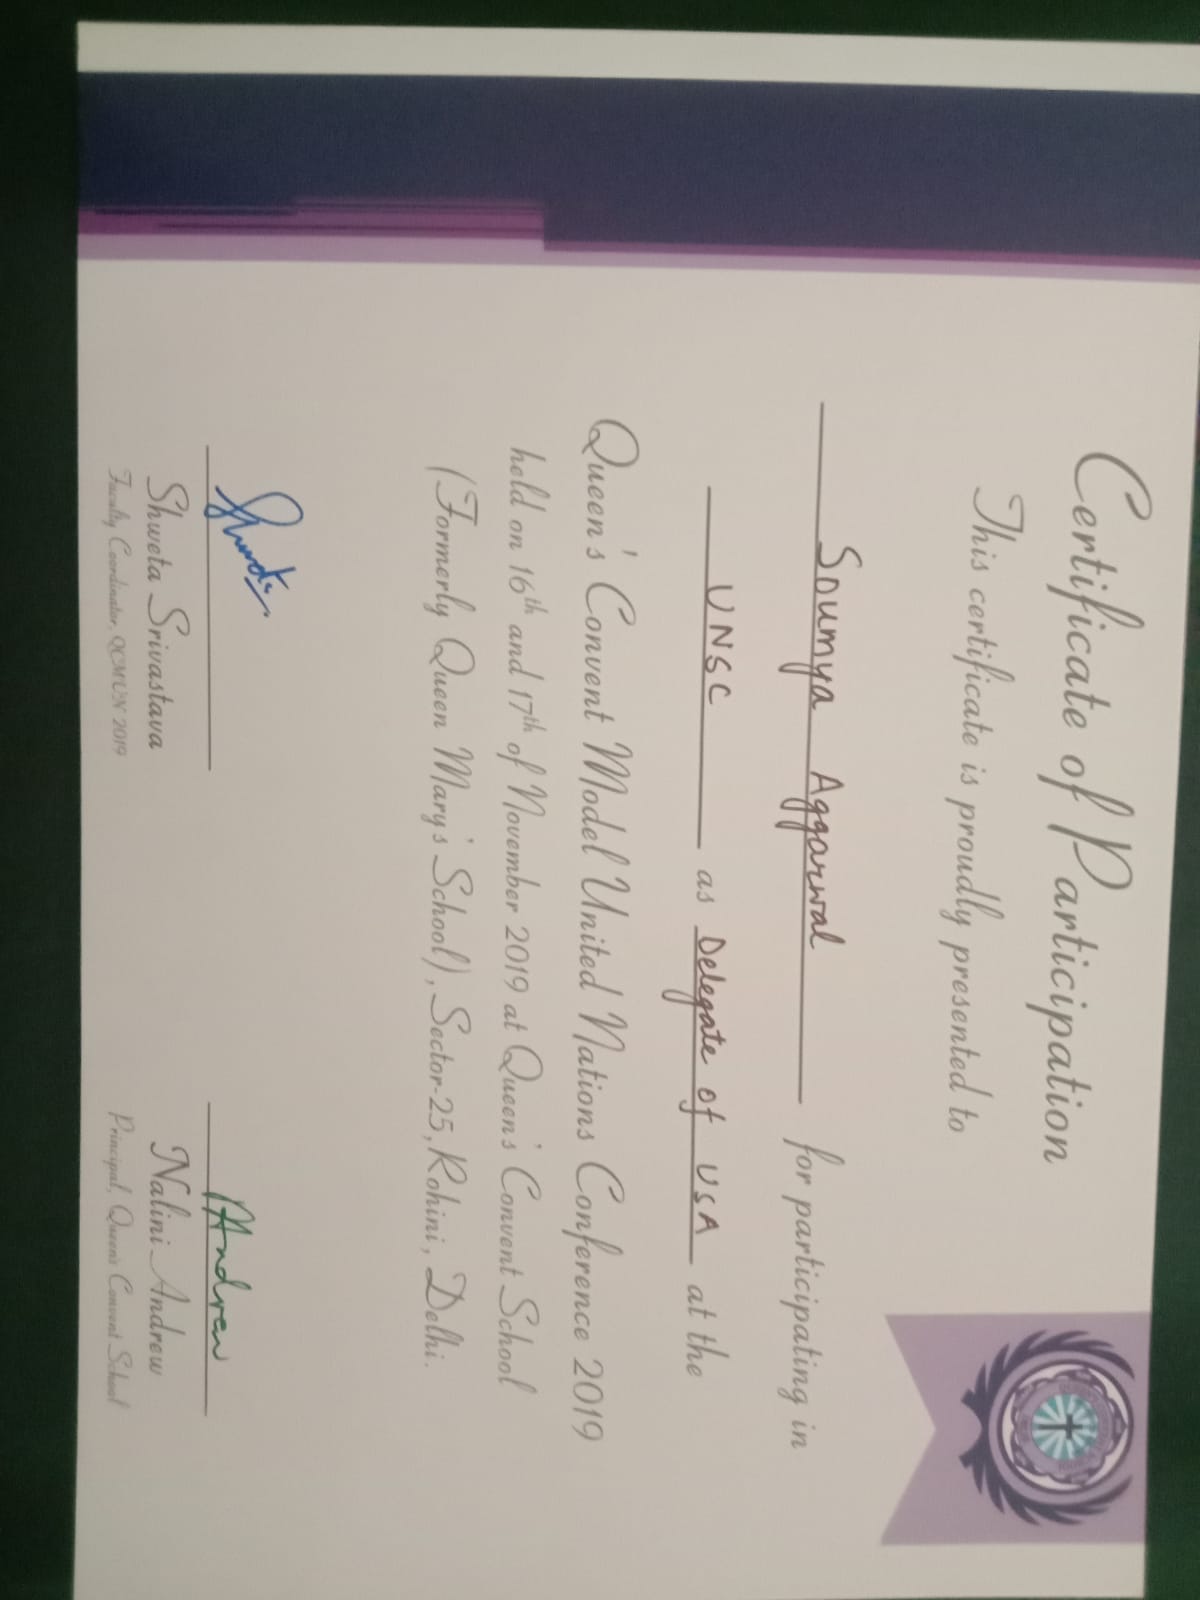 Certificate of Participation
This certificate is proudly presented to
Soumya Aggarwal for participating in
UNSC as Delegate of USA at the
Queen's Convent Model United Nations Conference 2019
held on 16th and 17th of November 2019 at Queen's Convent School
(Formerly Queen Mary's School), Sector-25, Rohini, Delhi.
Andrew
Shweta Srivastava
Faculty Coordinator, QCMUN 2019
Nalini Andrew
Principal, Queen's Convent School